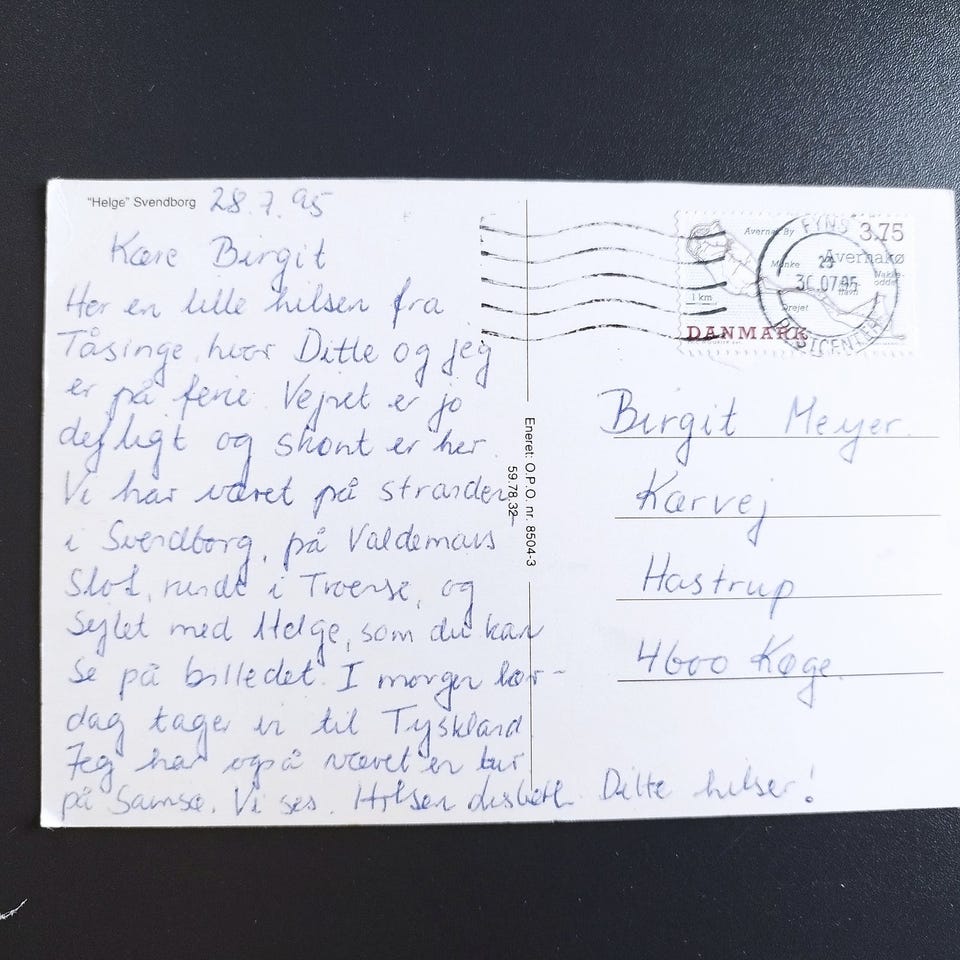 "Helge" Svendborg 28.7.95
Kære Birgit
Her en lille hilsen fra
Tåsinge, hvor Ditte og jeg
er på ferie. Vejret er jo
dejligt og skønt er her.
Vi har været på stranden
i Svendborg, på Valdemars
Slot, rundt i Troense, og
sejlet med Helge, som du kan
se på billedet. I morgen lør-
dag tager vi til Tyskland
Jeg har også været en tur
på Samsø. Vi ses. Hilsen Ditte hilser!
Eneret: O.P.O. nr. 8504-3
59.78.32
Avernak By
FYNS
3.75
Avernakø
Munke
30.07.95
1 km
Drejet
DANMARK
POSTCENTER
Birgit Meyer
Kærvej
Hastrup
4600 Køge